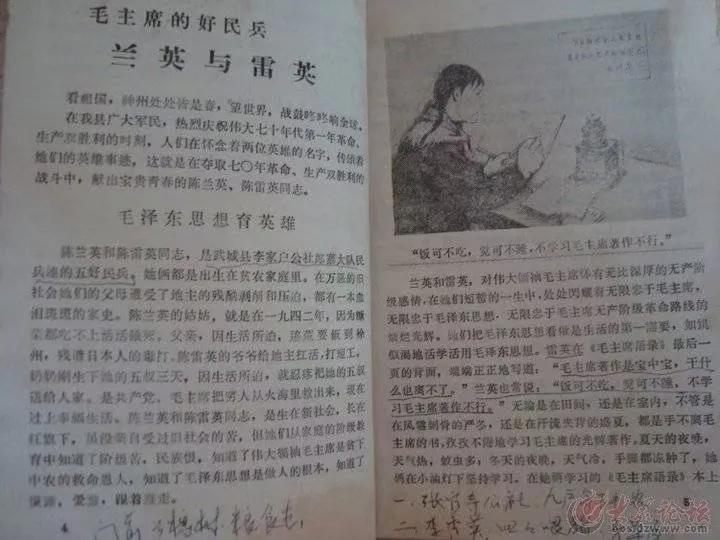 毛主席的好民兵
兰英与雷英
看祖国，神州处处皆是春，望世界，战鼓咚咚响全球。
在我县广大军民，热烈庆祝伟大七十年代第一年革命、
生产双胜利的时刻，人们在怀念着两位英雄的名字，传颂着
她们的英雄事迹，这就是在夺取七〇年革命、生产双胜利的
战斗中，献出宝贵青春的陈兰英、陈雷英同志。
毛泽东思想育英雄
陈兰英和陈雷英同志，是武城县李家户公社 大队民
兵连的五好民兵。她俩都是出生在贫农家庭里。在万恶的旧
社会她们的父母遭受了地主的残酷剥削和压迫，都有一本血
泪斑斑的家史。陈兰英的姑姑，就是在一九四二年，因为糠
菜都吃不上活活饿死。父亲，因生活所迫，逃荒要饭到徐
州，残遭日本人的毒打。陈雷英的爷爷给地主扛活，打短工，
奶奶刚生下她的五叔三天，因生活所迫，就忍疼把她的五叔
送给人家。是共产党、毛主席把穷人从火海里救出来，现在
过上幸福生活。陈兰英和陈雷英同志，是生在新社会，长在
红旗下，虽没亲自受过旧社会的苦，但她们从家庭的阶级教
育中知道了阶级苦，民族恨，知道了伟大领袖毛主席是贫下
中农的救命恩人，知道了毛泽东思想是做人的根本，知道了
4
“饭可不吃，觉可不睡，不学习毛主席著作不行。”
兰英和雷英，对伟大领袖毛主席怀有无比深厚的无产阶
级感情，在她们短暂的一生中，处处闪耀着无限忠于毛主席，
无限忠于毛泽东思想，无限忠于毛主席无产阶级革命路线的
灿烂光辉。她们把毛泽东思想看做是生活的第一需要，如饥
似渴地活学活用毛泽东思想。雷英在《毛主席语录》最后一
页的背面，端端正正地写道：“毛主席著作是宝中宝，干什
么也离不了。”兰英也常说：“饭可不吃，觉可不睡，不学
习毛主席著作不行。”无论是在田间，还是在室内，不管是
在风雪刺骨的严冬，还是在汗流夹背的盛夏，都是手不离毛
主席的书，孜孜不倦地学习毛主席的光辉著作，夏天的夜晚，
天气热，蚊虫多；冬天的夜晚，天气冷，手脚都冻肿了，她
俩在小油灯下坚持学习。在她俩学习的《毛主席语录》本上
5
bbs.dzwww.com